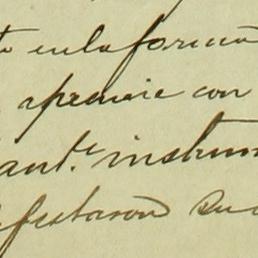 en la forma
apremie con
ant.e instrum
festaron su